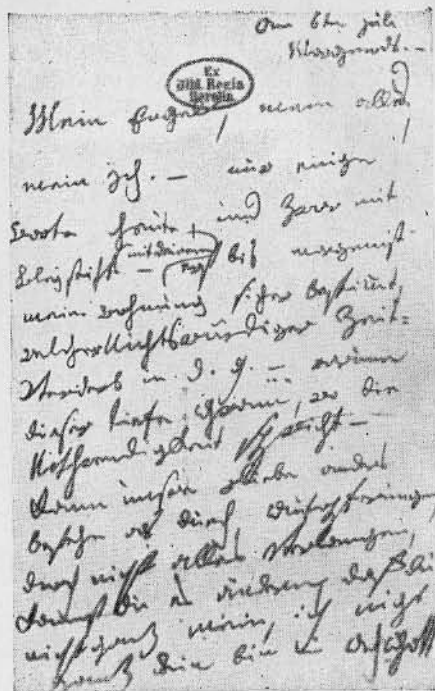 am 6ten juli
Morgends. –
Ex
Bibl. Regia
Berolin.
Mein Engel, mein alles,
mein Ich. – nur einige
Worte heute, und zwar mit
Bleystift – mit deinem erst bis morgen ist
meine wohnung sicher bestimt,
welcher Nichtswürdiger Zeit-
Verderb in d. g. – warum
dieser tiefe gram, wo die
Nothwendigkeit spricht –
Kann unsre liebe anders
bestehn als durch aufopferungen,
durch nicht alles verlangen,
kannst du es ändern, daß du
nicht ganz mein, ich nicht
ganz dein bin – Ach Gott